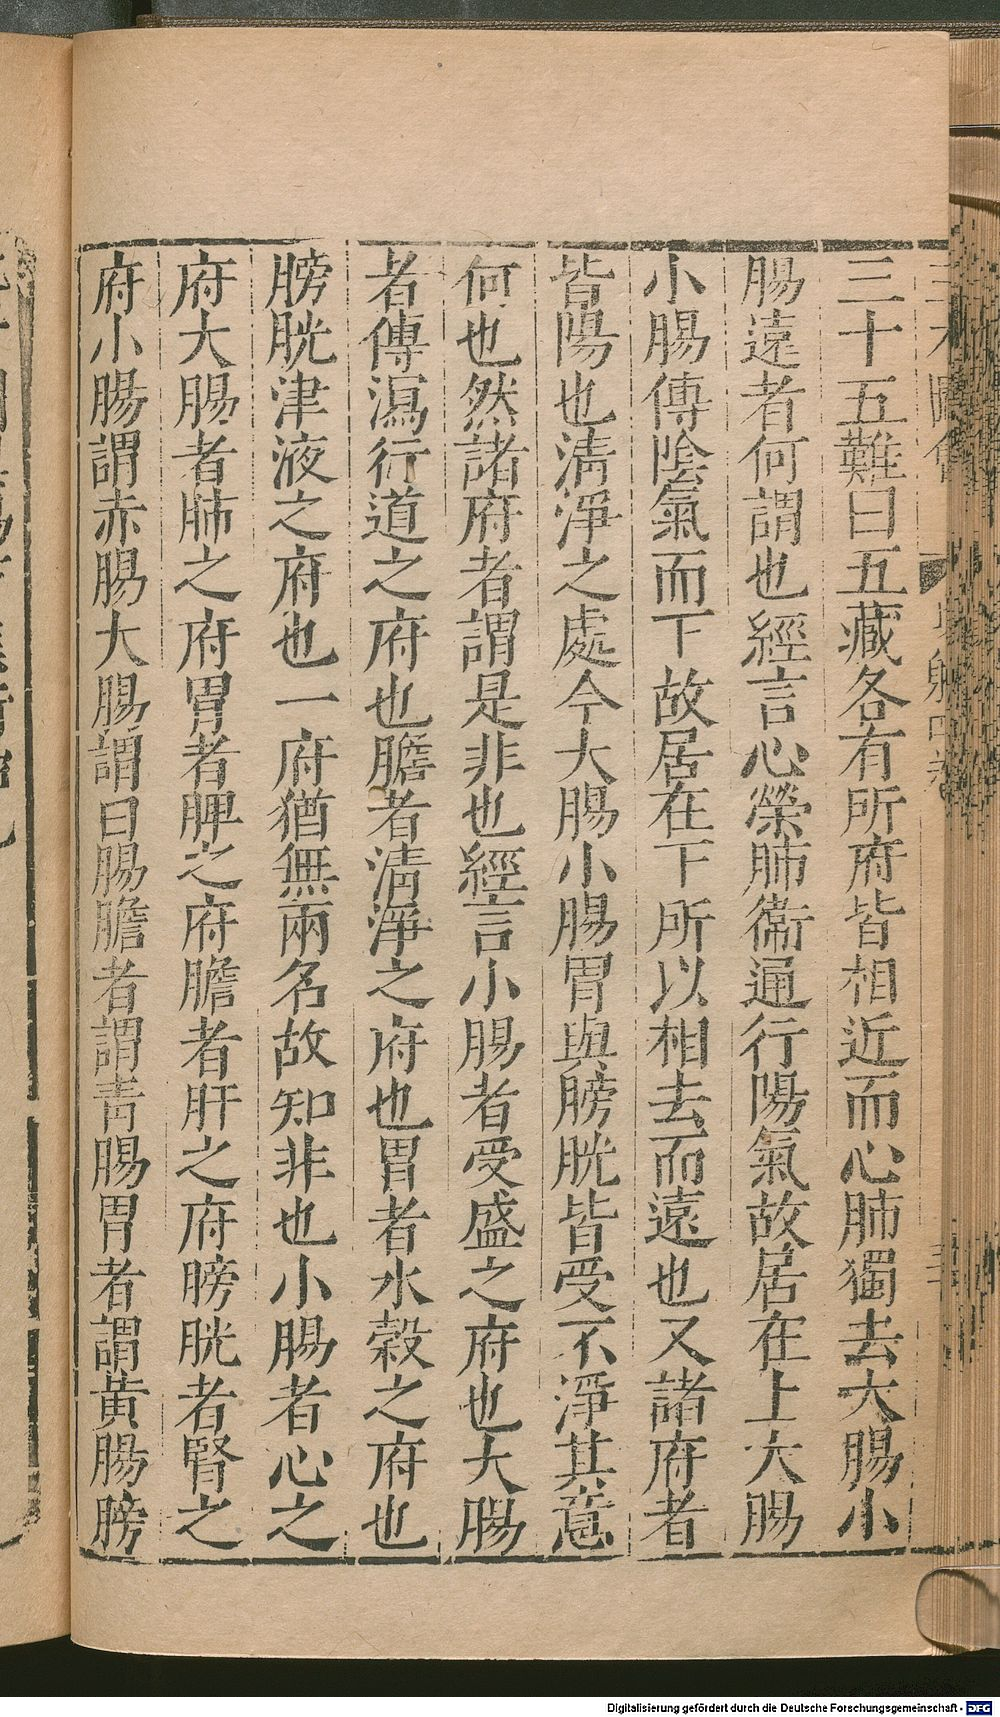 三十五難曰五藏各有所府皆相近而心肺獨去大腸小
腸遠者何謂也經言心榮肺衞通行陽氣故居在上大腸
小腸傳陰氣而下故居在下所以相去而遠也又諸府者
皆陽也淸淨之處今大腸小腸胃與膀胱皆受不淨其意
何也然諸府者謂是非也經言小腸者受盛之府也大腸
者傳瀉行道之府也膽者淸淨之府也胃者水穀之府也
膀胱津液之府也一府猶無兩名故知非也小腸者心之
府大腸者肺之府胃者脾之府膽者肝之府膀胱者腎之
府小腸謂赤腸大腸謂曰腸膽者謂靑腸胃者謂黃腸膀
Digitalisierung gefördert durch die Deutsche Forschungsgemeinschaft - DFG